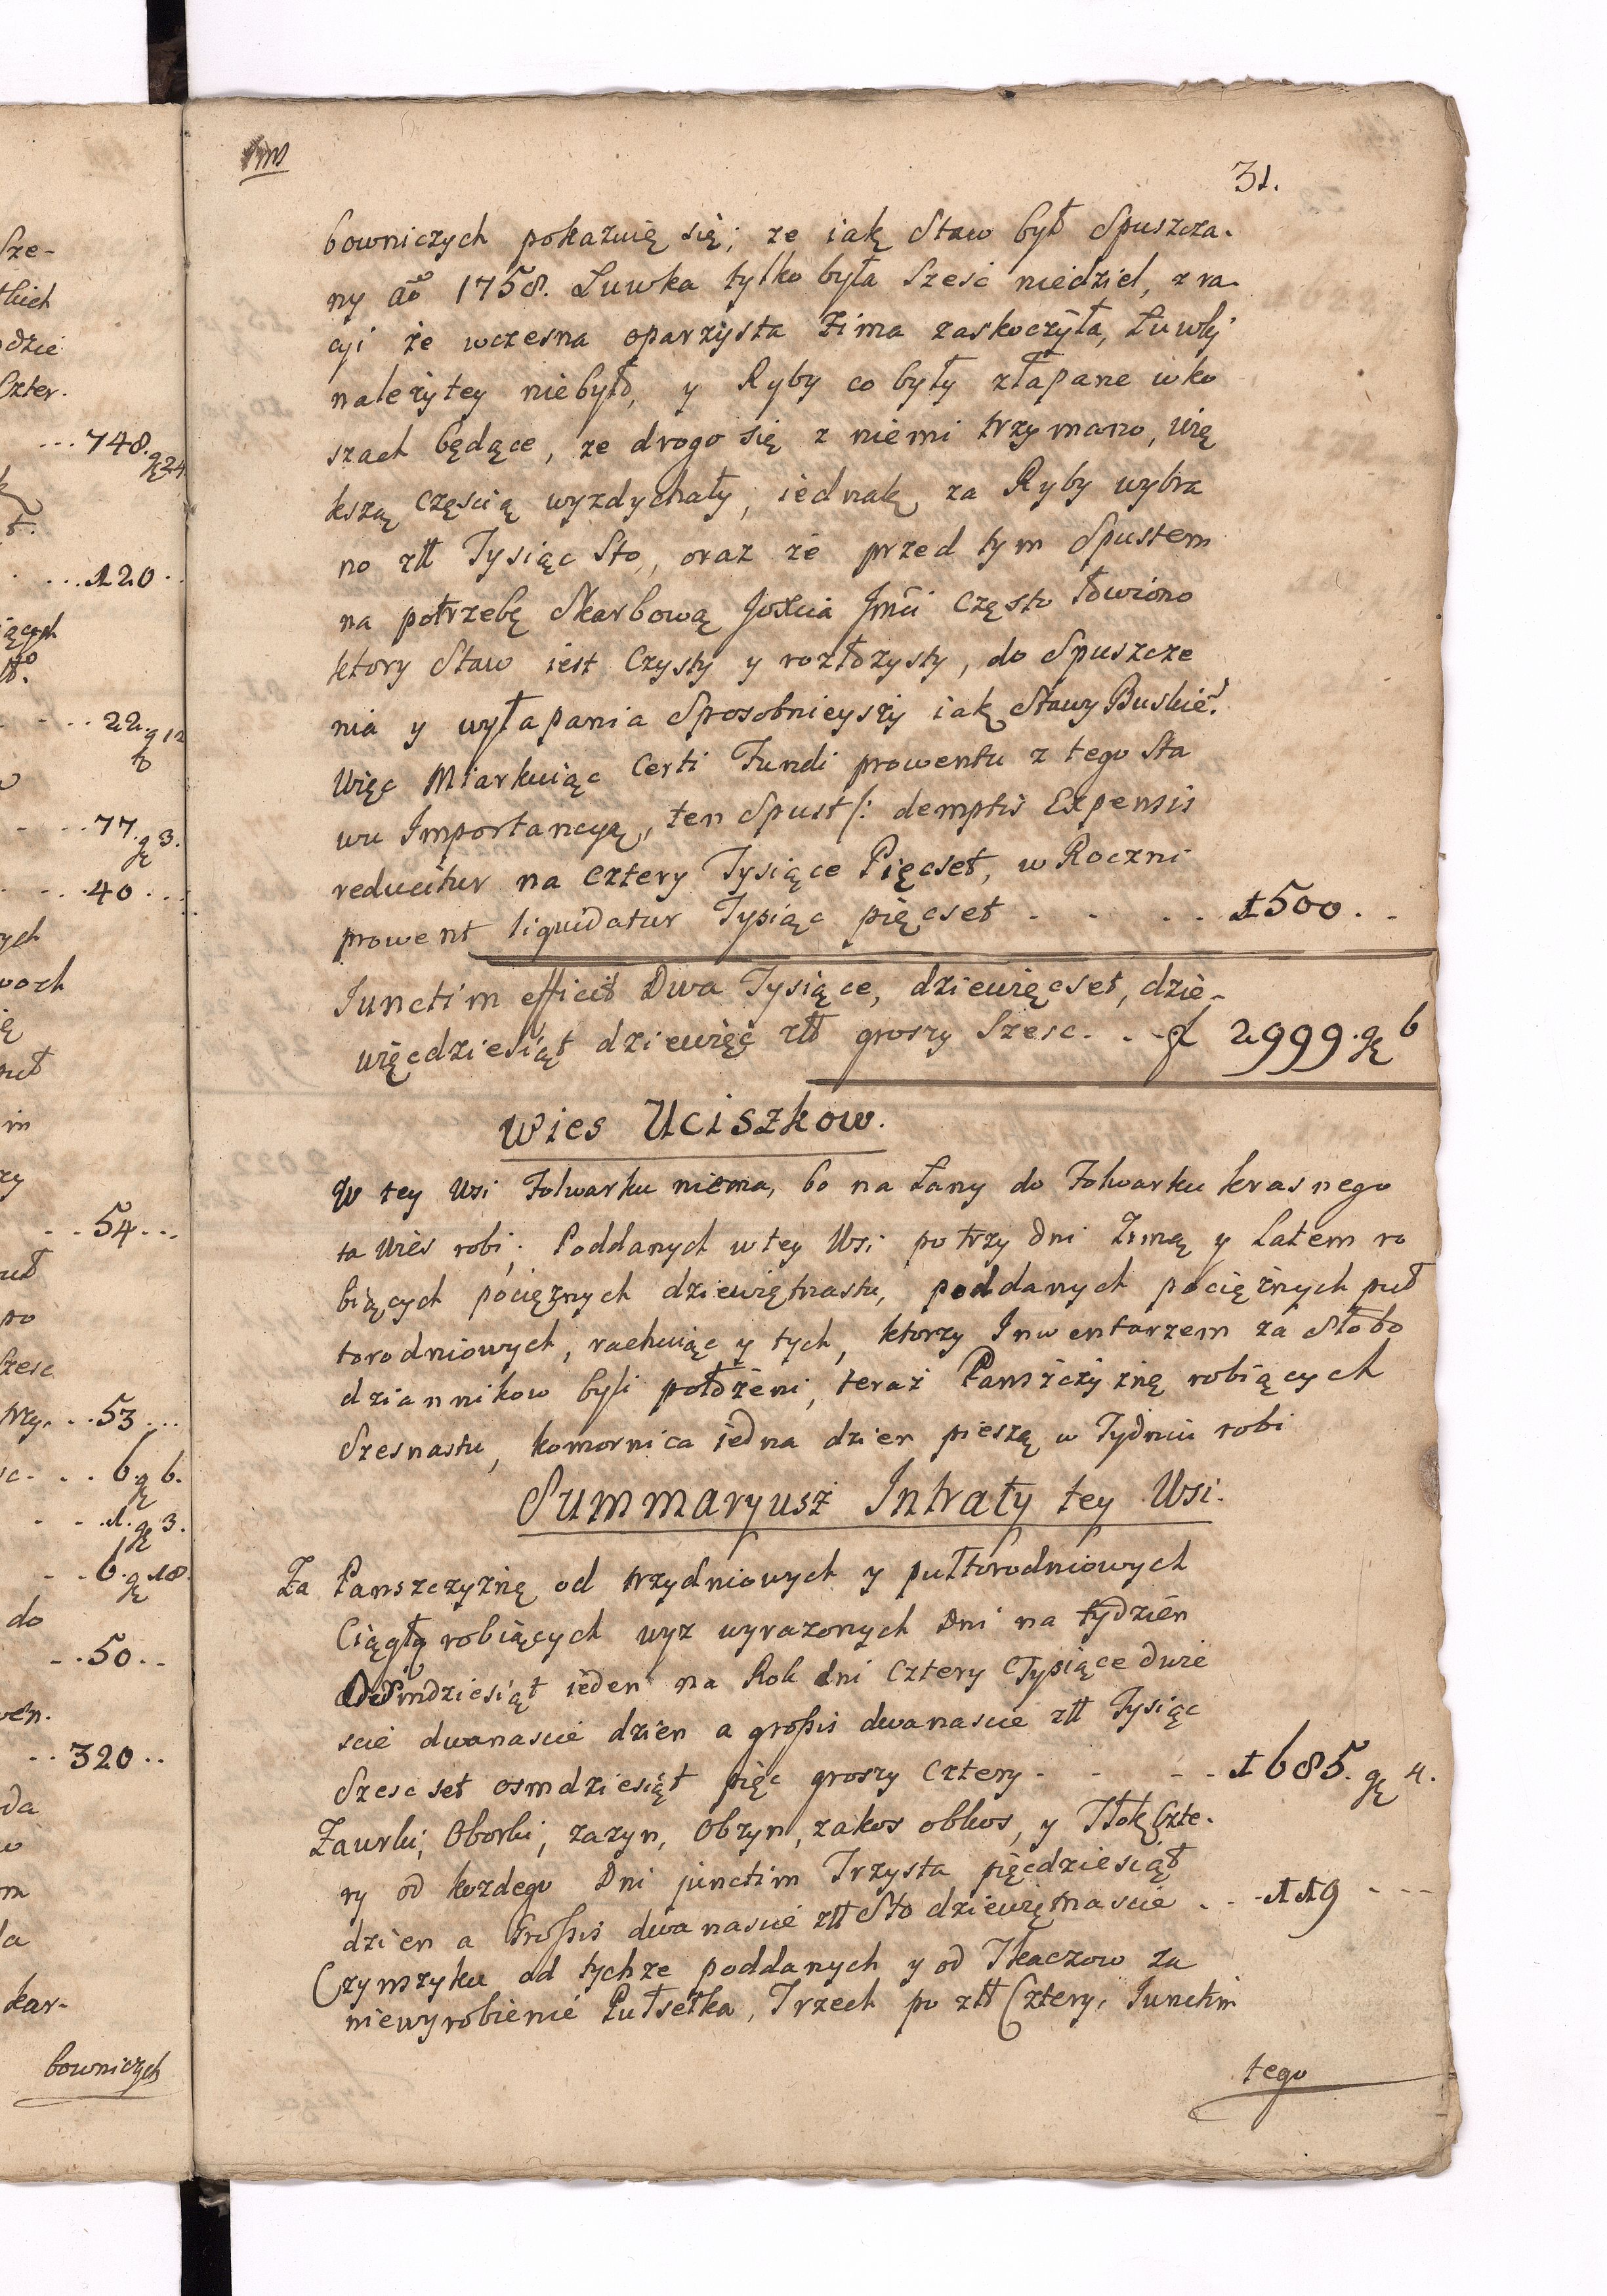 Sze-
tkich
odzie
Czter.
...748. gr 24
...120..
iących
...22 g 12
...77. gr 3.
...40...
ych
woch
ę
m
zy
..54...
no
Szesc
trzy...53...
sc...6 gr 6.
...1. gr 3.
..6. gr 18.
do
...50..
..320..
da
w
m
la
kar-
bowniczych
31.
bowniczych pokazuię się; ze iak Staw był Spuszcza-
ny aõ 1758. Luwka tylko była Szesc niedziel, z ra-
cyi że wczesna oparzysta Zima zaskoczyła, Łuwły
nalezytey niebyło, y Ryby co były złapane w ko
szach będące, ze drogo się z niemi trzymano, wię
kszą częscią wyzdychały, iednak za Ryby wybra
no złł Tysiąc Sto, oraz że przed tym Spustem
na potrzebę Skarbową JoXcia Jmci często łowiono
ktory Staw iest Czysty y rozłozysty, do Spuszcze
nia y wyłapania Sposobnieyszy iak Stawy Buskie.
Więc Miarkuiąc Certi Fundi prowentu z tego Sta
wu Importancyą, ten Spust /: demptis Expensis
reducitur na cztery Tysiące Pięcset, w Roczni
prowent liquidatur Tysiąc pięcset - - .. 1500..
Junctim efficit Dwa Tysiące, dziewięcset, dzie-
więcdziesiąt dziewięc złł groszy Szesc. . - f 2999. gr 6
Wies Uciszkow.
W tey Wsi Folwarku niema, bo na Łany do Folwarku krasnego
ta Wies robi. Poddanych w tey Wsi po trzy dni Zimą y Latem ro
biących pocięznych dziewiętnastu, poddanych pociężnych puł
torodniowych, rachuiąc y tych, ktorzy Inwentarzem za Słobo
dziannikow byli połozeni, teraz Panszczyznę robiących
Szesnastu, komornica iedna dzien pieszą w Tydniu robi
Summaryusz Intraty tey Wsi.
Za Panszczyznę od trzydniowych y pułtorodniowych
Ciągłą robiących wyz wyrazonych dni na tydzien
Osimdziesiąt ieden na Rok dni Cztery Tysiące dwie
scie dwanascie dzien a grossis dwanascie złł Tysiąc
Szesc set osmdziesiąt pięc groszy Cztery - - - .. 1685. gr 4.
Zaurki, Oborki, zazyn, Obzyn, zakos obkos, y Tłok Czte-
ry od kozdego Dni junctim Trzysta pięcdziesiąt
dzien a Grossis dwanascie złł Sto dziewiętnascie . . . 119 - - -
Czymszyku od tychze poddanych y od Tkaczow za
niewyrobienie Pułsetka, Trzech po złł Cztery, Junctim
tego